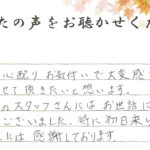 たの声をお聴かせくだ
心配り お気付いで大変感
せて頂きたいと思います。
のスタッフさんにはお世話に
ございました。特に初日来
には 感謝しております。